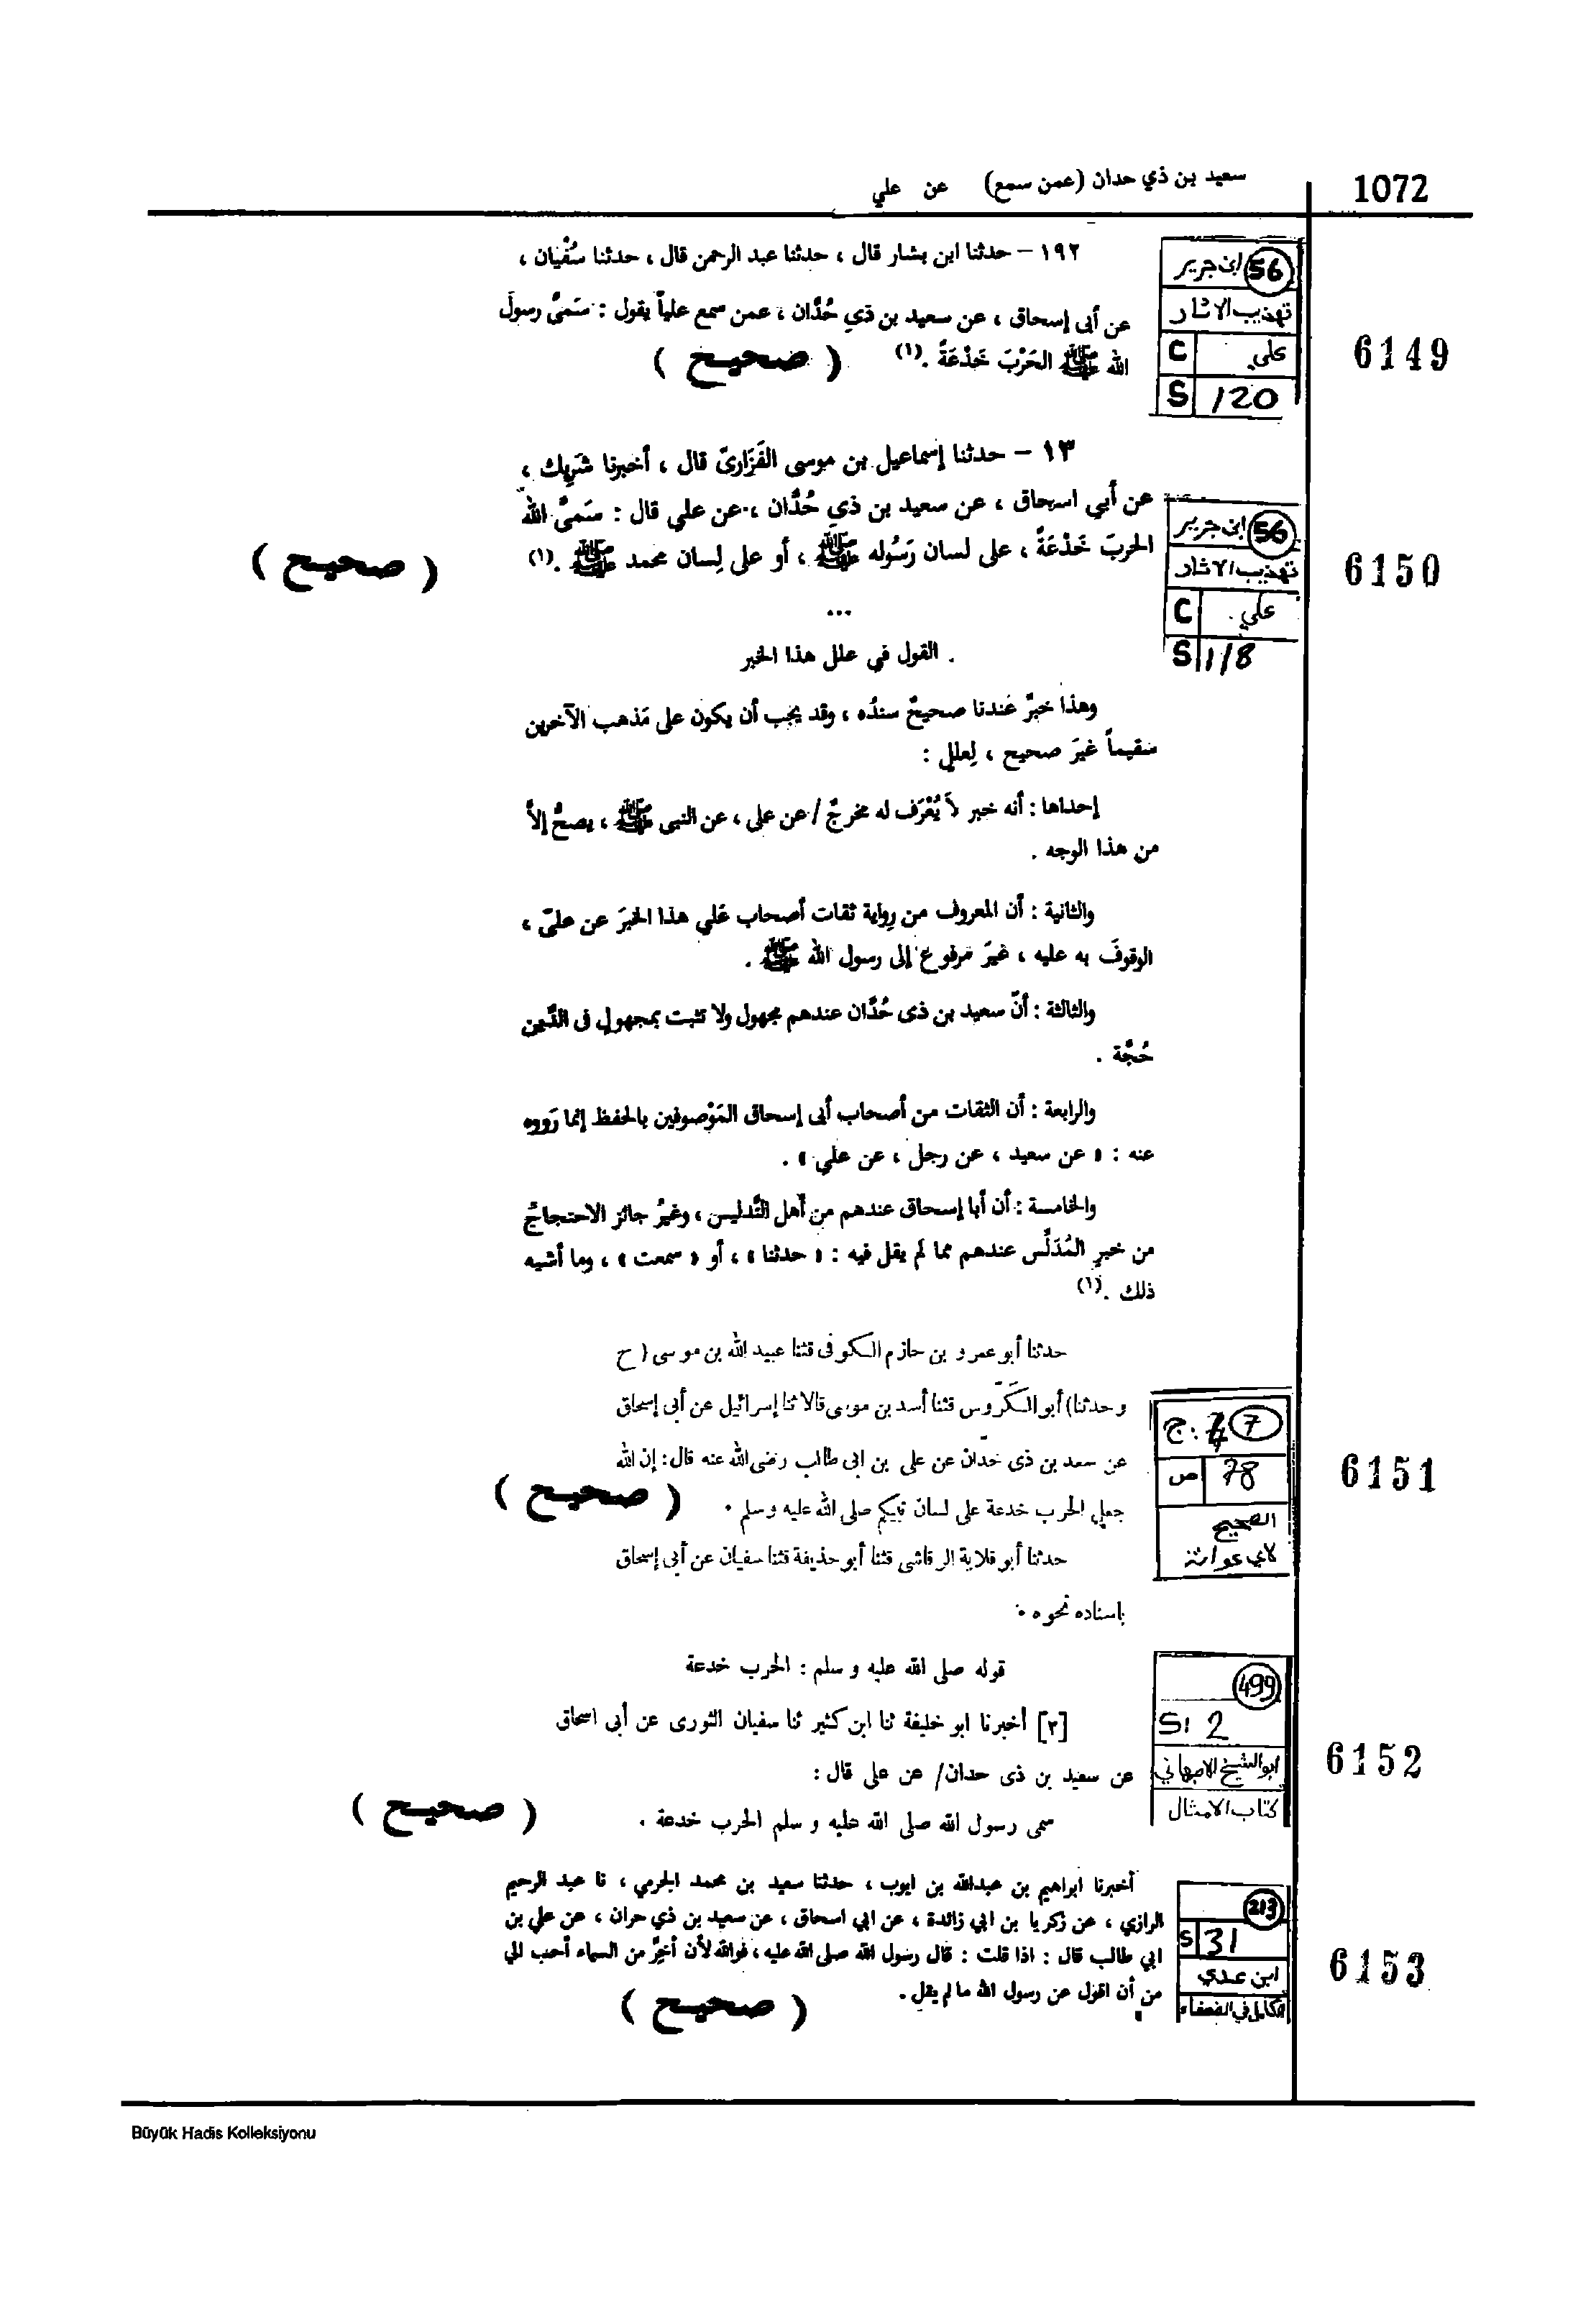 1072
سعيد بن ذي حدان (عمن سمع) عن علي
6149
56 ابن جرير
تهذيب الاثار
C علي
S 120
١٩٢ – حدثنا ابن بشار قال ، حدثنا عبد الرحمن قال ، حدثنا سُفْيان ،
عن أبى إسحاق ، عن سعيد بن ذي حُدَّان ، عمن سمع علياً يقول : سَمىَّ رسولَ
الله ﷺ الحَرْبَ خَدْعَةً .(١) ( صحيح )
6150
56 ابن جرير
تهذيب الاثار
C علي
S 118
١٣ – حدثنا إسماعيل بن موسى الفَزَارىّ قال ، أخبرنا شَرِيك ،
عن أبي اسحاق ، عن سعيد بن ذيِ حُدَّان ، عن علي قال : سَمىَّ الله
الحربَ خَدْعَةً ، على لسان رَسُوله ﷺ ، أو على لِسان محمد ﷺ .(١) ( صحيح )
...
القول في علل هذا الخبر
وهذا خبرٌ عندنا صحيحٌ سندُه ، وقد يجب أن يكون على مَذهب الآخرين
سقيماً غيرَ صحيح ، لِعللٍ :
إحداها : أنه خبر لاَ يُعْرَف له مخرجٌ / عن على ، عن النبى ﷺ ، يصحُّ إلاَّ
من هذا الوجه .
والثانية : أن المعروف من رِواية ثقات أصحاب عَلي هذا الخبرَ عن علىّ ،
الوقوفَ به عليه ، غيرَ مرفوع إلى رسول الله ﷺ .
والثالثة : أنّ سعيد بن ذى حُدَّان عندهم مجهول ولا تثبت بمجهولٍ فى الدِّين
حُجَّة .
والرابعة : أن الثقات من أصحاب أبى إسحاق المَوْصوفين بالحفظ إنما رَووه
عنه : « عن سعيد ، عن رجل ، عن علي » .
والخامسة : أن أبا إسحاق عندهم من أهل التَّدليس ، وغيرُ جائز الاحتجاجُ
من خبرِ المُدَلِّس عندهم مما لم يقل فيه : « حدثنا » ، أو « سمعت » ، وما أشبه
ذلك .(١)
6151
7 ج:
ص 78
الصحيح
لابي عوانة
حدثنا أبو عمرو بن حازم الكوفى قثنا عبيد الله بن موسى (ح
وحدثنا) أبو الكَرَّوس قثنا أسد بن موسى قالا ثنا إسرائيل عن أبى إسحاق
عن سعد بن ذى حدّان عن على بن ابى طالب رضى الله عنه قال: إن الله
جعل الحرب خدعة على لسان نبيكم صلى الله عليه وسلم . ( صحيح )
حدثنا أبو قلابة الرقاشى قثنا أبو حذيفة قثنا سفيان عن أبى إسحاق
باسناده نحوه .
6152
499
S: 2
ابو الشيخ الاصبهاني
كتاب الامثال
قوله صلى الله عليه و سلم : الحرب خدعة
[٢] أخبرنا ابو خليفة ثنا ابن كثير ثنا سفيان الثورى عن أبى اسحاق
عن سعيد بن ذى حدان/ عن على قال :
سمى رسول الله صلى الله عليه و سلم الحرب خدعة . ( صحيح )
6153
213
S 31
ابن عدي
الكامل في الضعفاء
أخبرنا ابراهيم بن عبدالله بن ايوب ، حدثنا سعيد بن محمد الجرمي ، نا عبد الرحيم
الرازي ، عن زكريا بن ابي زائدة ، عن ابي اسحاق ، عن سعيد بن ذي حران ، عن علي بن
ابي طالب قال : اذا قلت : قال رسول الله صلى الله عليه ، فوالله لأن أخِرَّ من السماء أحب الي
من أن اقول عن رسول الله ما لم يقل . ( صحيح )
Büyük Hadis Kolleksiyonu